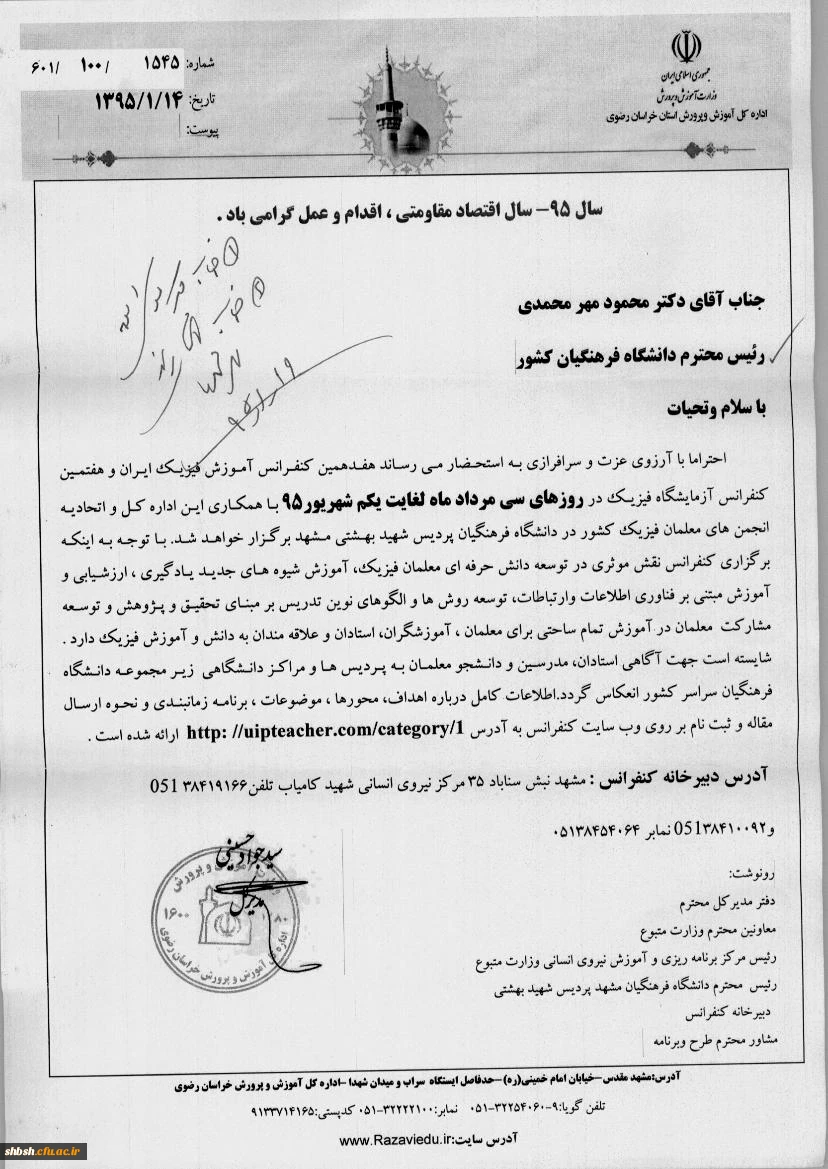 جمهوری اسلامی ایران
وزارت آموزش و پرورش
اداره کل آموزش وپرورش استان خراسان رضوی
شماره: ۱۵۴۵ /۱۰۰ /۶۰۱
تاریخ: ۱۳۹۵/۱/۱۴
پیوست:
سال ۹۵- سال اقتصاد مقاومتی ، اقدام و عمل گرامی باد .
جناب آقای دکتر محمود مهر محمدی
رئیس محترم دانشگاه فرهنگیان کشور
با سلام وتحیات
احتراما با آرزوی عزت و سرافرازی به استحضار می رساند هفدهمین کنفرانس آموزش فیزیک ایران و هفتمین
کنفرانس آزمایشگاه فیزیک در روزهای سی مرداد ماه لغایت یکم شهریور۹۵ با همکاری این اداره کل و اتحادیه
انجمن های معلمان فیزیک کشور در دانشگاه فرهنگیان پردیس شهید بهشتی مشهد برگزار خواهد شد. با توجه به اینکه
برگزاری کنفرانس نقش موثری در توسعه دانش حرفه ای معلمان فیزیک، آموزش شیوه های جدید یادگیری ، ارزشیابی و
آموزش مبتنی بر فناوری اطلاعات وارتباطات، توسعه روش ها و الگوهای نوین تدریس بر مبنای تحقیق و پژوهش و توسعه
مشارکت معلمان در آموزش تمام ساحتی برای معلمان ، آموزشگران، استادان و علاقه مندان به دانش و آموزش فیزیک دارد .
شایسته است جهت آگاهی استادان، مدرسین و دانشجو معلمان به پردیس ها و مراکز دانشگاهی زیر مجموعه دانشگاه
فرهنگیان سراسر کشور انعکاس گردد.اطلاعات کامل درباره اهداف، محورها ، موضوعات ، برنامه زمانبندی و نحوه ارسال
مقاله و ثبت نام بر روی وب سایت کنفرانس به آدرس http: //uipteacher.com/category/1 ارائه شده است .
آدرس دبیرخانه کنفرانس : مشهد نبش سناباد ۳۵ مرکز نیروی انسانی شهید کامیاب تلفن۳۸۴۱۹۱۶۶ 051
و۰۵۱۳۸۴۱۰۰۹۲ نمابر ۰۵۱۳۸۴۵۴۰۶۴
سید جواد حسینی
مدیرکل
اداره کل آموزش و پرورش خراسان رضوی
رونوشت:
دفتر مدیرکل محترم
معاونین محترم وزارت متبوع
رئیس مرکز برنامه ریزی و آموزش نیروی انسانی وزارت متبوع
رئیس محترم دانشگاه فرهنگیان مشهد پردیس شهید بهشتی
دبیرخانه کنفرانس
مشاور محترم طرح وبرنامه
آدرس:مشهد مقدس–خیابان امام خمینی(ره) –حدفاصل ایستگاه سراب و میدان شهدا –اداره کل آموزش و پرورش خراسان رضوی
تلفن گویا:۹-۳۲۲۵۴۰۶۰-۰۵۱ نمابر:۳۲۲۲۲۱۰۰-۰۵۱ کدپستی:۹۱۳۳۷۱۴۱۶۵
آدرس سایت:www.Razaviedu.ir
shbsh.cfu.ac.ir